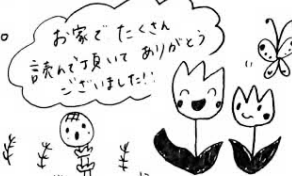 お家で たくさん
読んで頂いて ありがとう
ございました!!